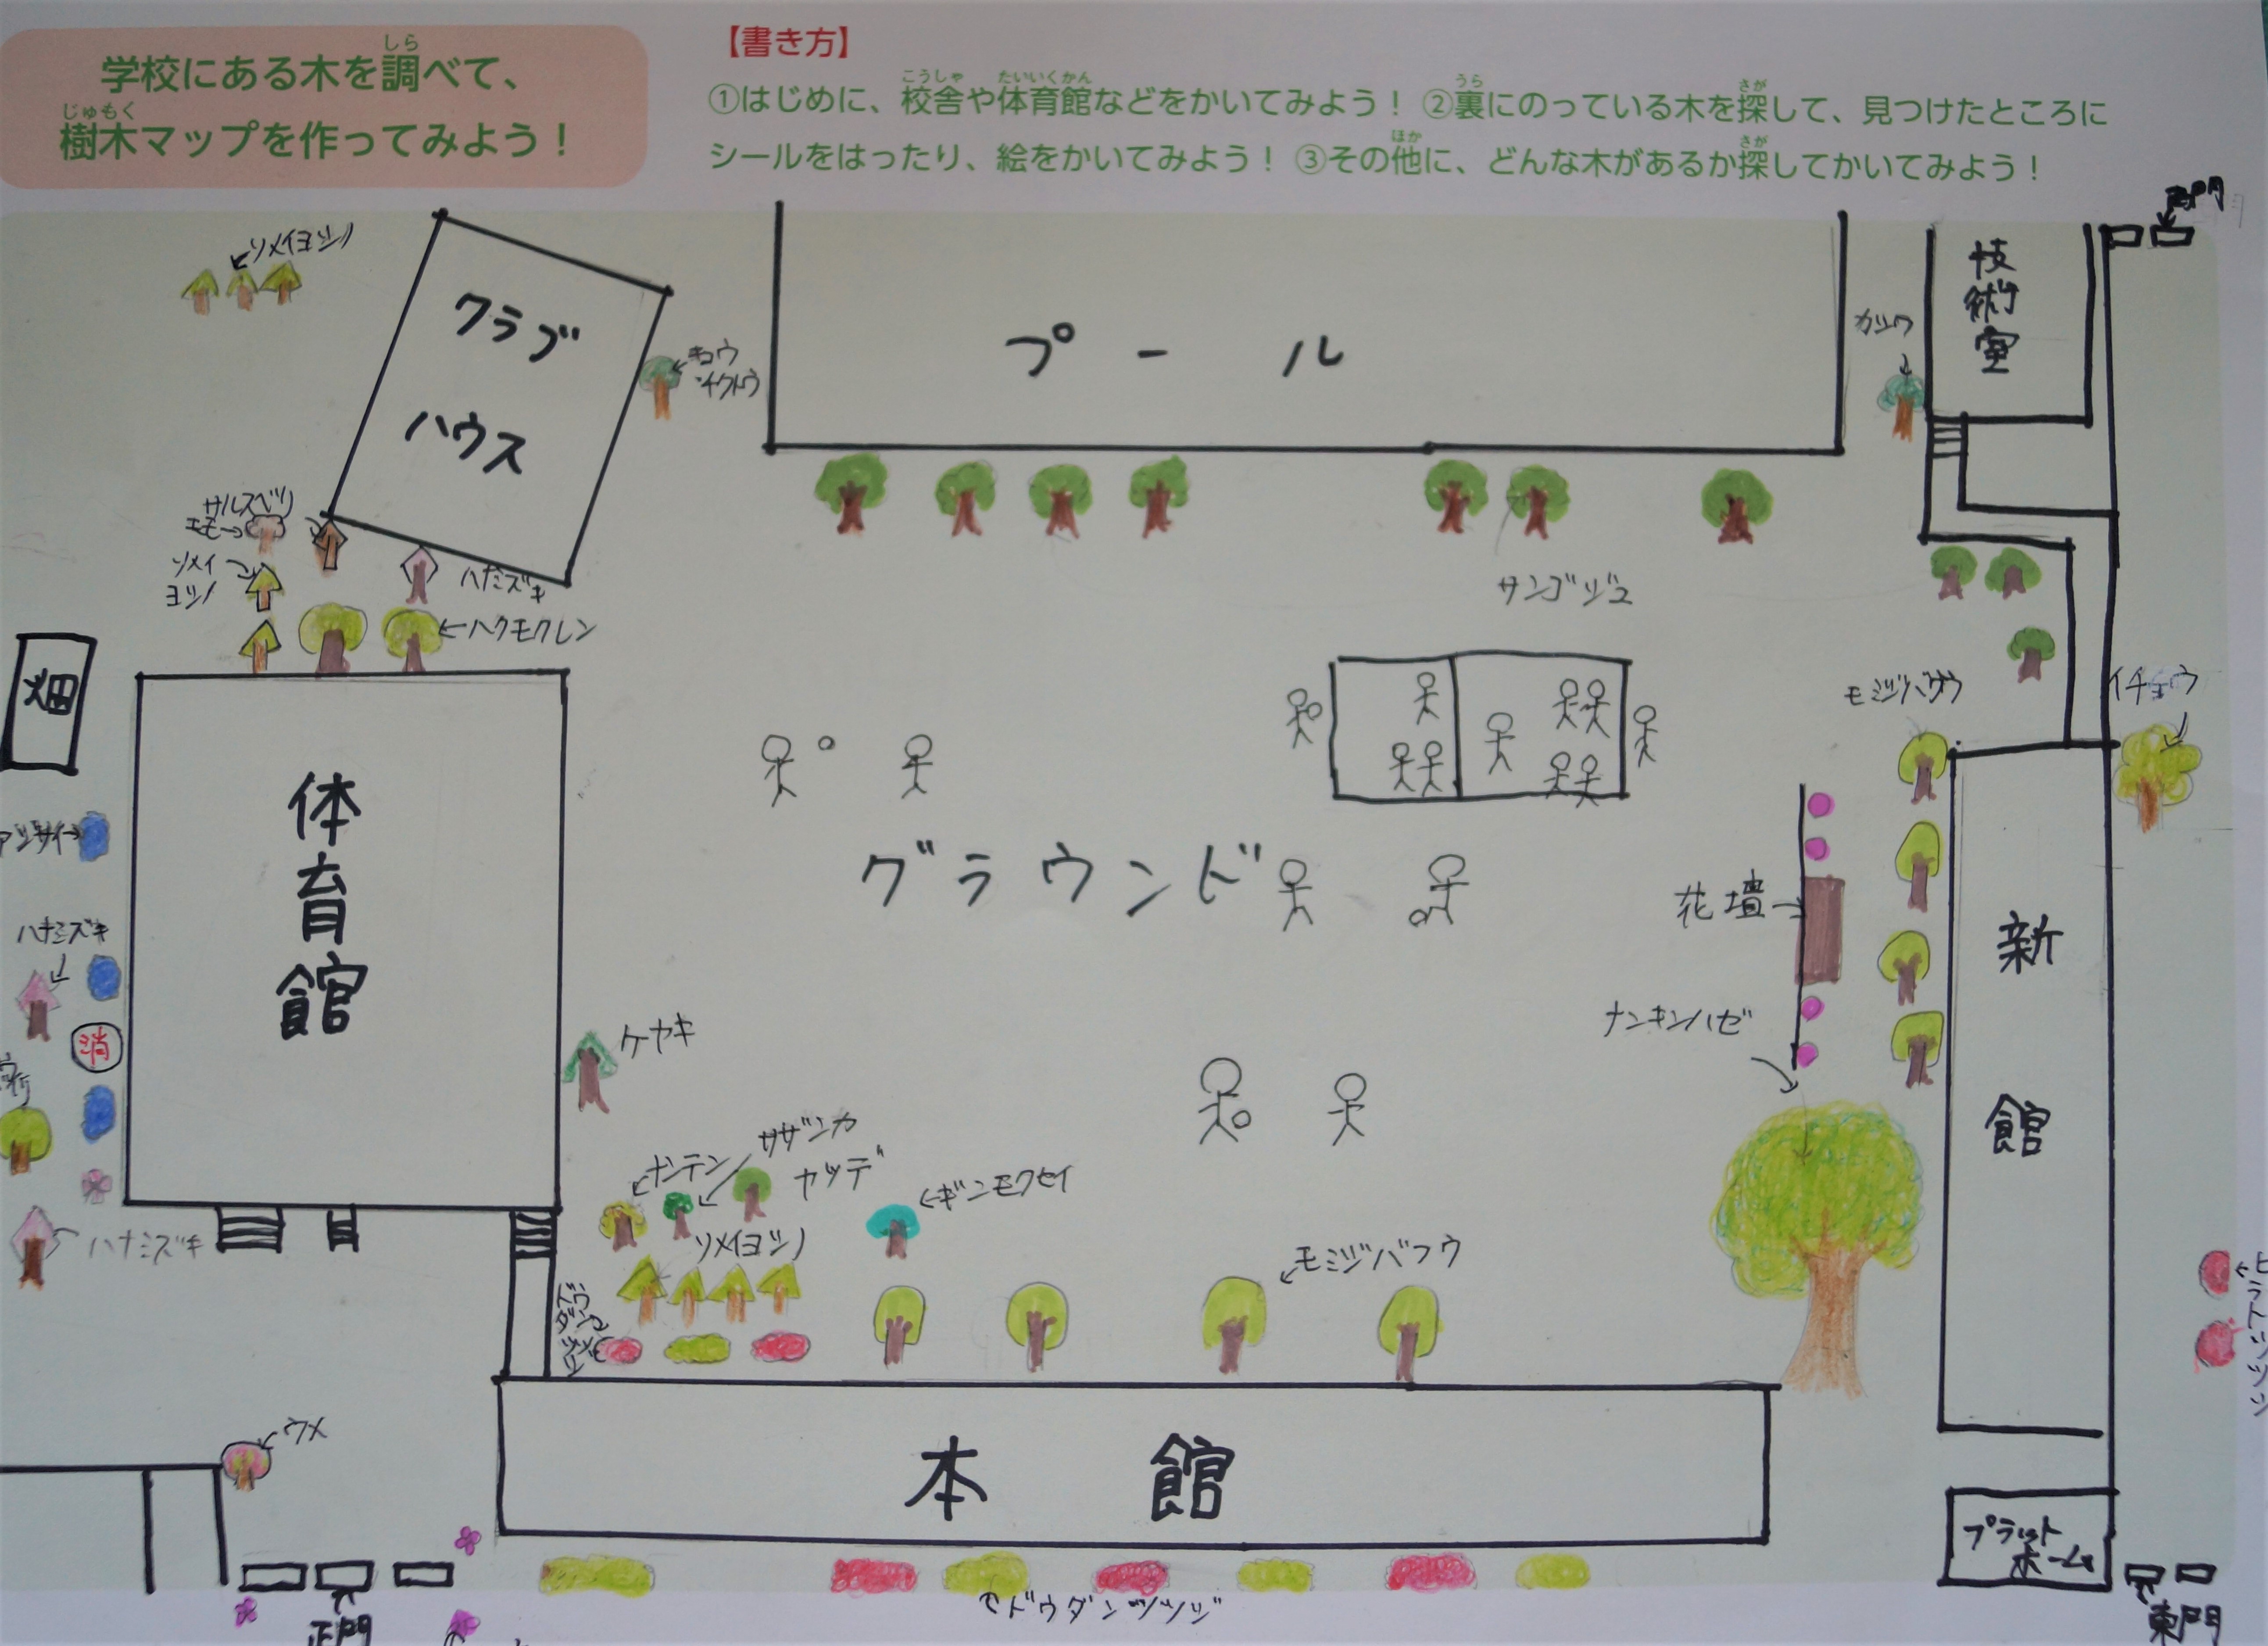 学校にある木を調べて、
樹木マップを作ってみよう！
【書き方】
①はじめに、校舎や体育館などをかいてみよう！ ②裏にのっている木を探して、見つけたところに
シールをはったり、絵をかいてみよう！ ③その他に、どんな木があるか探してかいてみよう！
ソメイヨシノ
クラブ
ハウス
キョウ
チクトウ
プール
カツラ
技術室
サルスベリ
ソメイ
ヨシノ
ハナミズキ
ハクモクレン
サンゴジュ
畑
体育館
アジサイ
ハナミズキ
消
ハナミズキ
ケヤキ
グラウンド
モミジバフウ
イチョウ
花壇
ナンキンハゼ
新館
ナンテン
サザンカ
ヤツデ
ギンモクセイ
ソメイヨシノ
ドウダンツツジ
モミジバフウ
ウメ
本館
ドウダンツツジ
正門
プラット
ホーム
東門
ヒラドツツジ